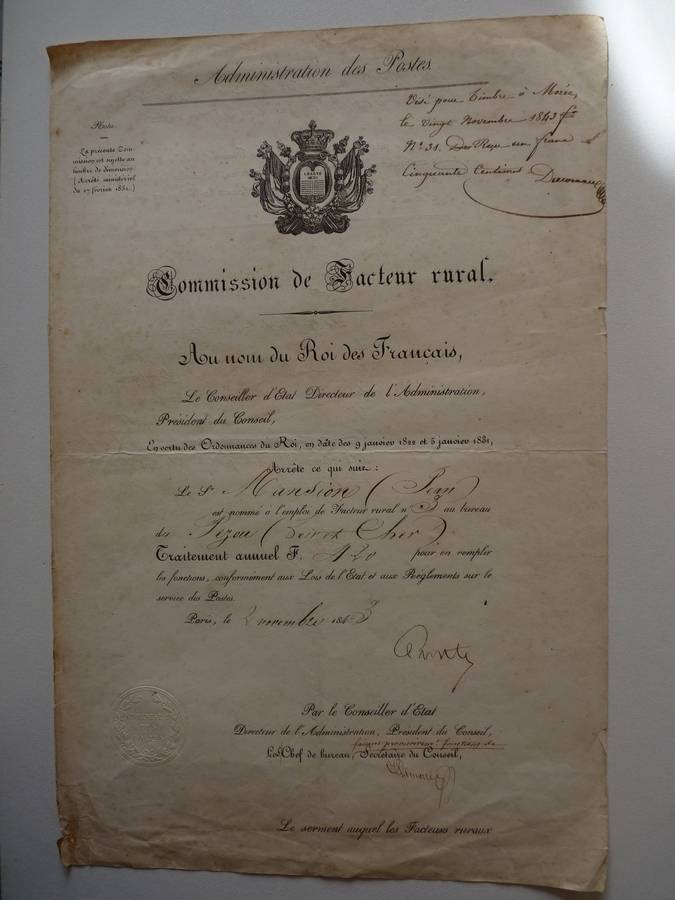 Administration des Postes.
Visé pour timbre à Morée,
le vingt Novembre 1843 fo
No 31. Dr Reçu un franc
Cinquante Centimes
Nota.
La présente Com-
mission est sujette au
timbre de dimension
(Arrêté ministériel
du 17 février 1831.)
CHARTE
1830
Commission de Facteur rural.
Au nom du Roi des Français,
Le Conseiller d'Etat Directeur de l'Administration,
Président du Conseil,
En vertu des Ordonnances du Roi, en date des 9 janvier 1822 et 5 janvier 1831,
Arrête ce qui suit :
Le Sr Mansion (Jean)
est nommé à l'emploi de Facteur rural no 3 au bureau
de Pezou (Loir et Cher)
Traitement annuel F. 420 pour en remplir
les fonctions, conformément aux Lois de l'Etat et aux Réglements sur le
service des Postes.
Paris, le 2 novembre 1843
Conte
Par le Conseiller d'Etat
Directeur de l'Administration, Président du Conseil,
faisant provisoiremt fonctions de
Chef de bureau, Secrétaire du Conseil,
Le serment auquel les Facteurs ruraux